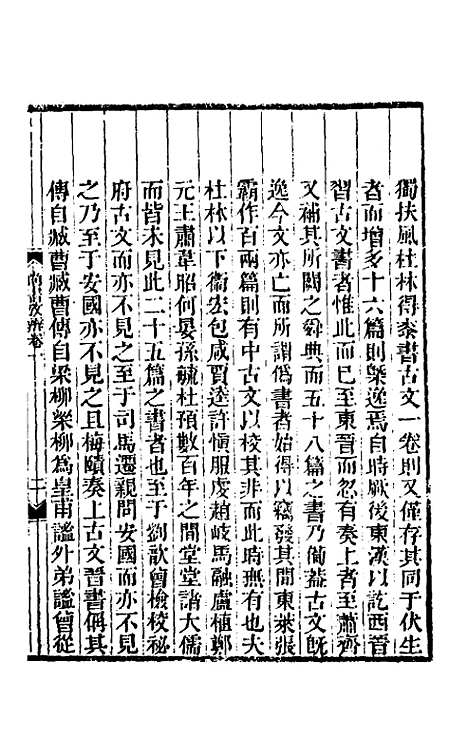 獨扶風杜林得桼書古文一卷則又僅存其同于伏生
者而增多十六篇則槩逸焉自時厥後東漢以訖西晉
習古文書者惟此而已至東晉而忽有奏上者至蕭齊
又補其所闕之舜典而五十八篇之書乃備葢古文旣
逸今文亦亡而所謂僞書者始得以竊發其間東萊張
霸作百兩篇則有中古文以校其非而此時無有也夫
杜林以下衞宏包咸賈逵許愼服虔趙岐馬融盧植鄭
元王肅韋昭何晏孫毓杜預數百年之間堂堂諸大儒
而皆未見此二十五篇之書者也至于劉歆曾檢校秘
府古文而亦不見之至于司馬遷親問安國而亦不見
之乃至于安國亦不見之且梅賾奏上古文晉書偁其
傳自臧曹臧曹傳自梁柳梁柳爲皇甫謐外弟謐曾從
尚書攷辨卷一
二十